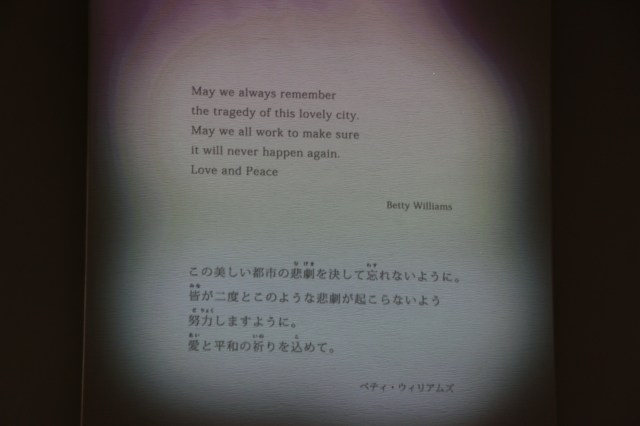 May we always remember
the tragedy of this lovely city.
May we all work to make sure
it will never happen again.
Love and Peace
Betty Williams
この美しい都市の悲劇を決して忘れないように。
皆が二度とこのような悲劇が起こらないよう
努力しますように。
愛と平和の祈りを込めて。
ベティ・ウィリアムズ